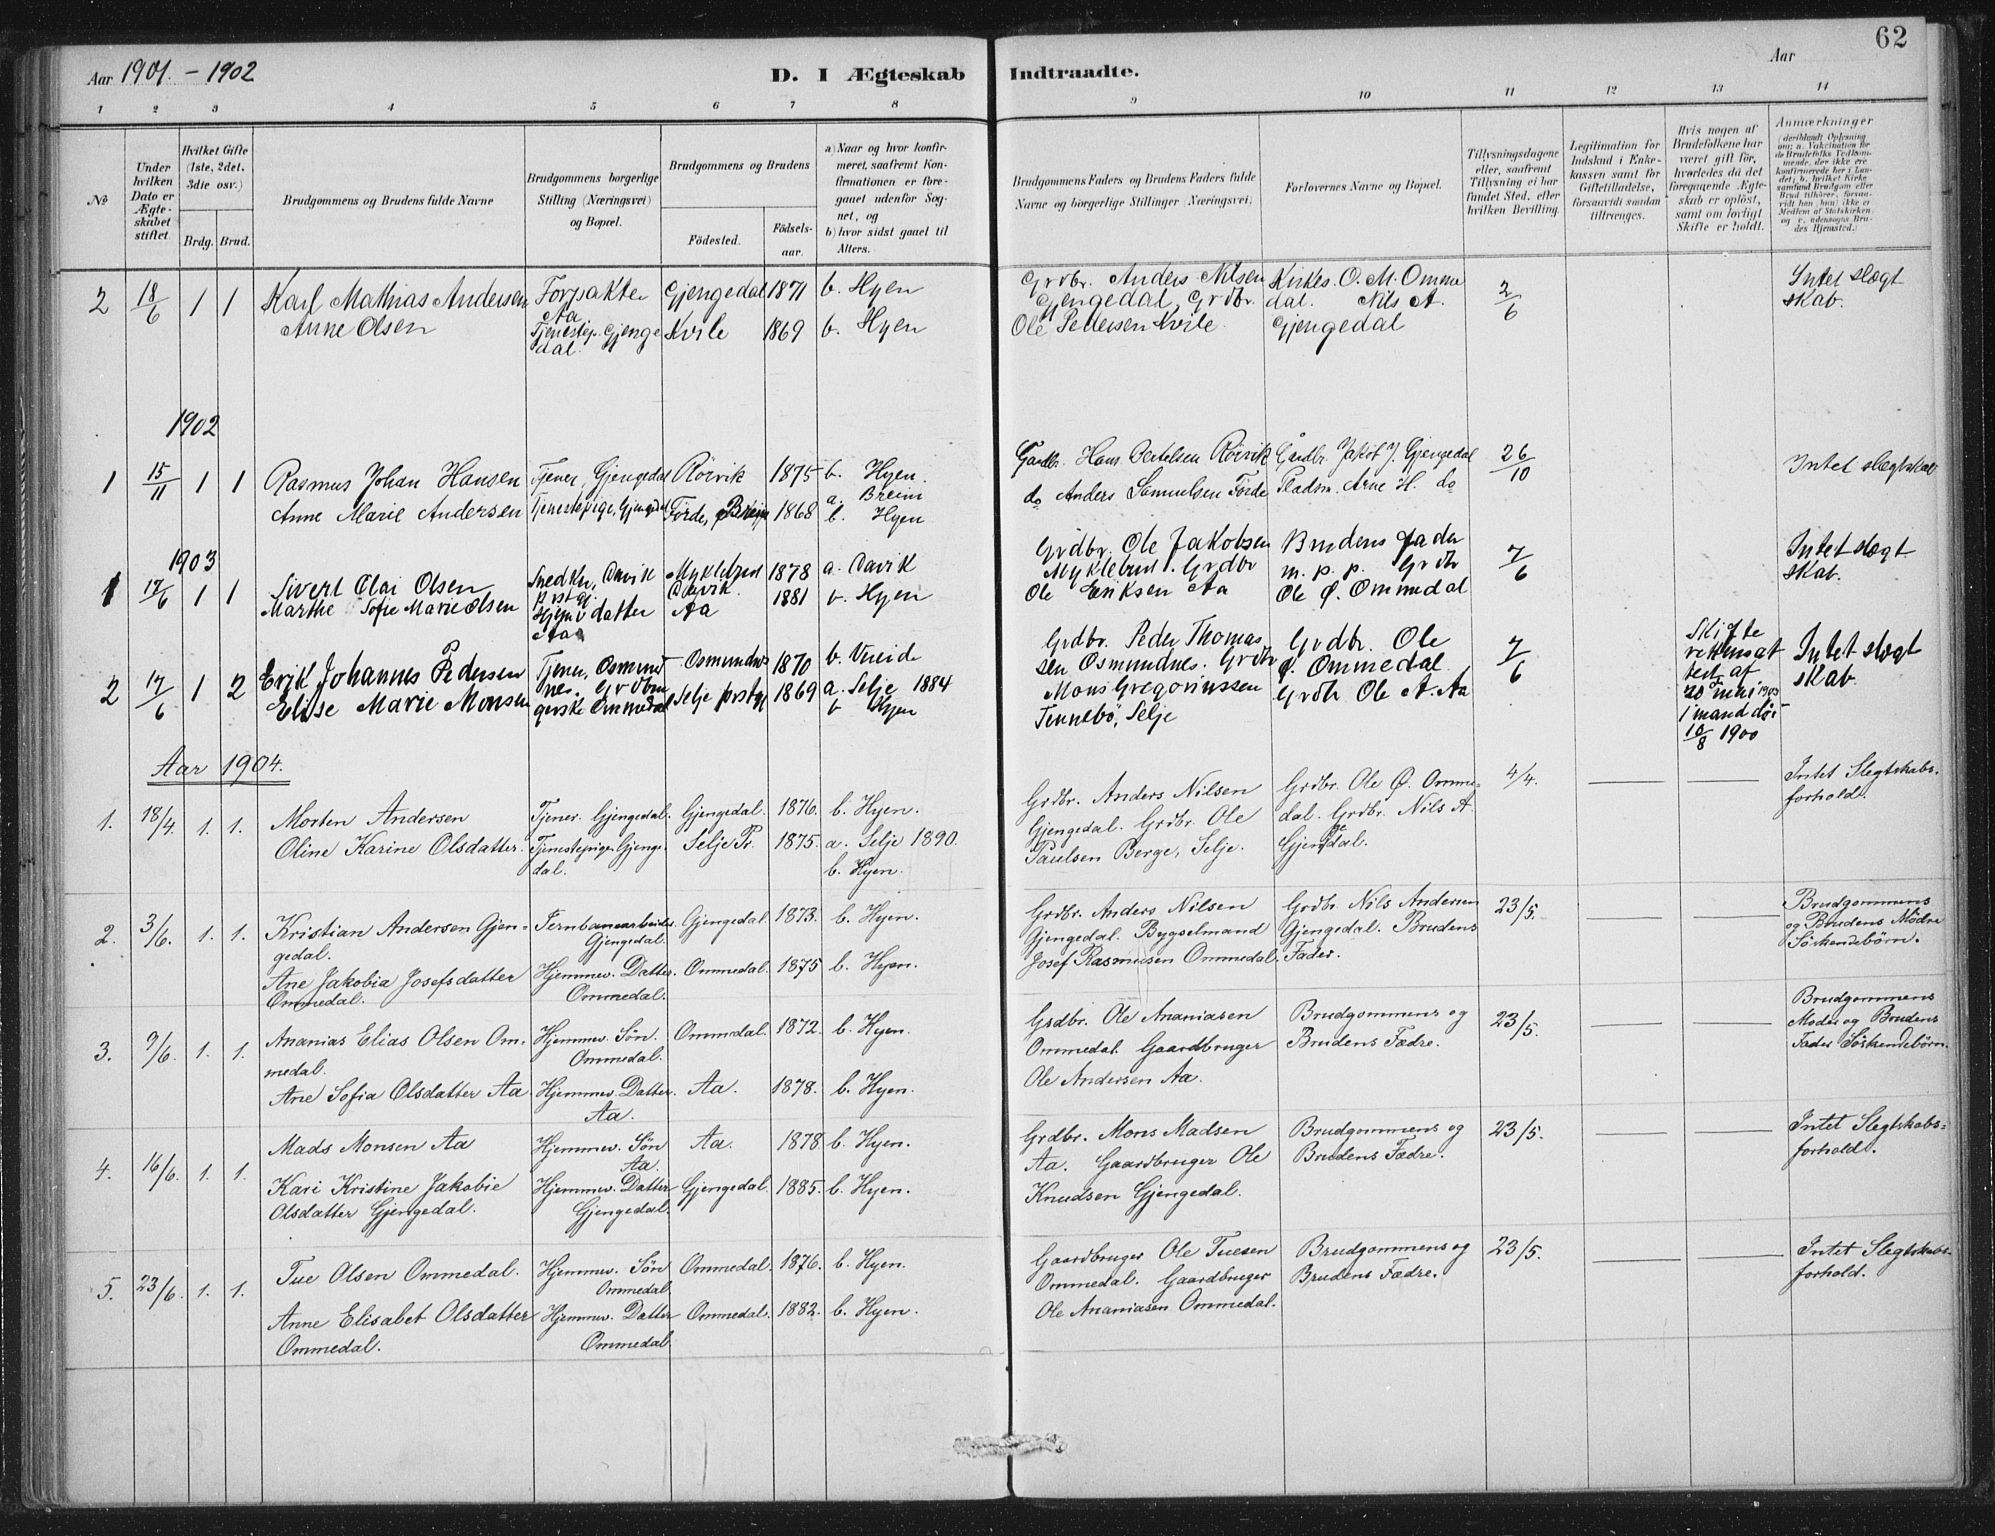 62
Aar 1901. - 1902
D. I Ægteskab Indtraadte.
Aar
1 2 3 4 5 6 7 8 9 10 11 12 13 14
№
Under hvilken Dato er Ægteskabet stiftet.
Hvilket Gifte (1ste, 2det, 3die osv.)
Brdg. Brud.
Brudgommens og Brudens fulde Navne
Brudgommens borgerlige Stilling (Næringsvei) og Bopæl.
Brudgommens og Brudens
Fødested.
Fødselsaar.
a) Naar og hvor konfirmeret, saafremt Konfirmationen er foregaaet udenfor Sognet, og
b) hvor sidst gaaet til Alters.
Brudgommens Faders og Brudens Faders fulde Navne og borgerlige Stillinger (Næringsvei)
Forlovernes Navne og Bopæl.
Tillysningsdagene eller, saafremt Tillysning ei har fundet Sted, efter hvilken Bevilling.
Legitimation for Indskud i Enkekassen samt for Giftetilladelse, forsaavidt saadan tiltrænges.
Hvis nogen af Brudefolkene har været gift før, hvorledes da det foregaaende Ægteskab er opløst, samt om lovligt Skifte er holdt.
Anmærkninger
2 18/6 1 1 Karl Mathias Andersen Gjengedal 1871 b. Hyen
Aa
Anne Olsen Tjenestep. Gjengedal. Kvile 1869 b. Hyen
Grdbr. Anders Nilsen Gjengedal, Grdbr. Ole Pedersen Kvile.
Kirkes. O. M. Ommedal. Nils A. Gjengedal
2/6
Intet slægtskab.
1902
1 15/11 1 1 Rasmus Johan Hansen Tjener, Gjengedal Rörvik 1875 b. Hyen.
Anne Marie Andersen Tjenestepige, Gjengedal Förde, Breim 1868 a. Breim
b. Hyen
Gardbr. Hans Bertelsen Rörvik
do Anders Samuelsen Förde
Gardbr. Jakob J. Gjengedal
Pladsm. Arne H. do
26/10
Intet slægtskab
1903
1 17/6 1 1 Sivert Olai Olsen Snedker, Davik Myklebust Davik. 1878 a. Davik
Marthe Sofie Marie Olsen datter Aa Aa 1881 b. Hyen
Grdbr. Ole Jakobsen Myklebust. Grdbr Ole Eriksen Aa
Brudens fader m. p. p. Grdbr Ole Ø. Ommedal
7/6
Intet slægtskab.
2 17/6 1 2 Erik Johannes Pedersen Tjener, Osmundnes. Osmundnes 1870 b. Vereide
Elise Marie Monsen Ommedal Selje prstgj 1869 a. Selje 1884
b Hyen
Grdbr. Peder Thomassen Osmundnes. Grdbr Mons Gregoriussen Tennebö, Selje
Grdbr. Ole Ø. Ommedal. Grdbr Ole A. Aa
7/6
Skifte af 20 mai 1903
1 mand död 10/8 1900
Intet slægtskab.
Aar 1904.
1. 18/4. 1. 1. Morten Andersen Tjener. Gjengedal. Gjengedal. 1876. b. Hyen.
Oline Karine Olsdatter. Tjenestepige. Gjengedal. Selje Pr. 1875. a. Selje 1890.
b. Hyen.
Grdbr. Anders Nilsen Gjengedal. Grdbr. Ole Paulsen Berge, Selje.
Grdbr. Ole Ø. Ommedal. Grdbr. Nils A. Gjengedal.
4/4.
Intet Slegtskabsforhold.
2. 3/6. 1. 1. Kristian Andersen Gjengedal. Jernbanearbeider. Gjengedal. Gjengedal. 1873. b. Hyen.
Ane Jakobia Josefsdatter Ommedal. Hjemmev. Datter. Ommedal. Ommedal. 1875 b. Hyen.
Grdbr. Anders Nilsen Gjengedal. Bygselmand Josef Rasmusen Ommedal.
Grdbr. Nils Andersen Gjengedal. Brudens Fader.
23/5.
Brudgommens og Brudens Mödre Söskendebörn.
3. 9/6. 1. 1. Ananias Elias Olsen Ommedal. Hjemmev. Sön. Ommedal. Ommedal. 1872. b. Hyen.
Ane Sofia Olsdatter Aa. Hjemmev. Datter. Aa. Aa. 1878. b. Hyen.
Grdbr. Ole Ananiasen Ommedal. Gaardbruger Ole Andersen Aa.
Brudgommens og Brudens Fædre.
23/5.
Brudgommens Moder og Brudens Fader Söskendebörn.
4. 16/6. 1. 1. Mads Monsen Aa Hjemmev. Sön Aa. Aa. 1878 b. Hyen.
Kari Kristine Jakobie Olsdatter Gjengedal. Hjemmev. Datter Gjengedal. Gjengedal. 1885. b. Hyen.
Grdbr. Mons Madsen Aa. Gaardbruger Ole Knudsen Gjengedal.
Brudgommens og Brudens Fædre.
23/5.
Intet Slegtskabsforhold.
5. 23/6. 1. 1. Tue Olsen Ommedal. Hjemmev. Sön Ommedal. Ommedal. 1876. b. Hyen.
Anne Elisabet Olsdatter Ommedal. Hjemmev. Datter Ommedal. Ommedal. 1882. b. Hyen.
Gaardbruger Ole Tuesen Ommedal. Gaardbruger Ole Ananiasen Ommedal.
Brudgommens og Brudens Fædre.
23/5.
Intet Slegtskabsforhold.